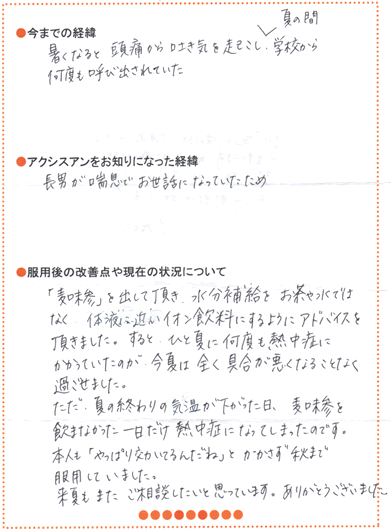 ●今までの経緯
夏の間
暑くなると 頭痛から吐き気を起こし、学校から
何度も呼び出されていた
●アクシスアンをお知りになった経緯
長男が喘息でお世話になっていたため
●服用後の改善点や現在の状況について
「麦味参」を出して頂き、水分補給を お茶や水では
なく 体液に近いイオン飲料にするようにアドバイスを
頂きました。すると、ひと夏に何度も熱中症に
かかっていたのが 今夏は全く具合が悪くなることなく
過ごせました。
ただ、夏の終わりの気温が下がった日、麦味参を
飲まなかった一日だけ熱中症になってしまったのです。
本人も「やっぱり効いてるんだね」とかかさず秋まで
服用していました。
来夏もまた ご相談したいと思っています。ありがとうございました